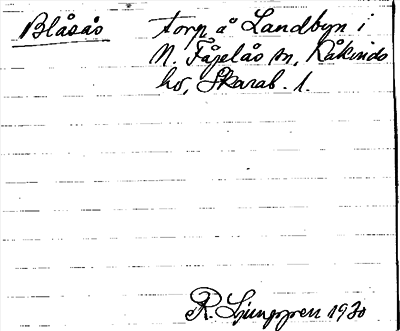 Blåsås torp å Landbyn i
N. Fågelås sn, Kåkinds
hd, Skarab. l.
R. Ljunggren 1930